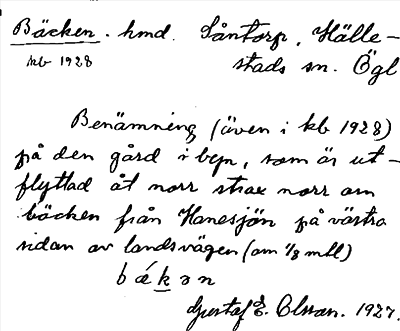 Bäcken. hmd. Såntorp, Hälle-
kb 1928 stads sn. Ögl
Benämning (även i kb 1928)
på den gård i byn, som är ut-
flyttad åt norr strax norr om
bäcken från Hanesjön på västra
sidan av landsvägen (om 1/8 mbl)
b á k ə n
Gustaf E. Olsson. 1927.